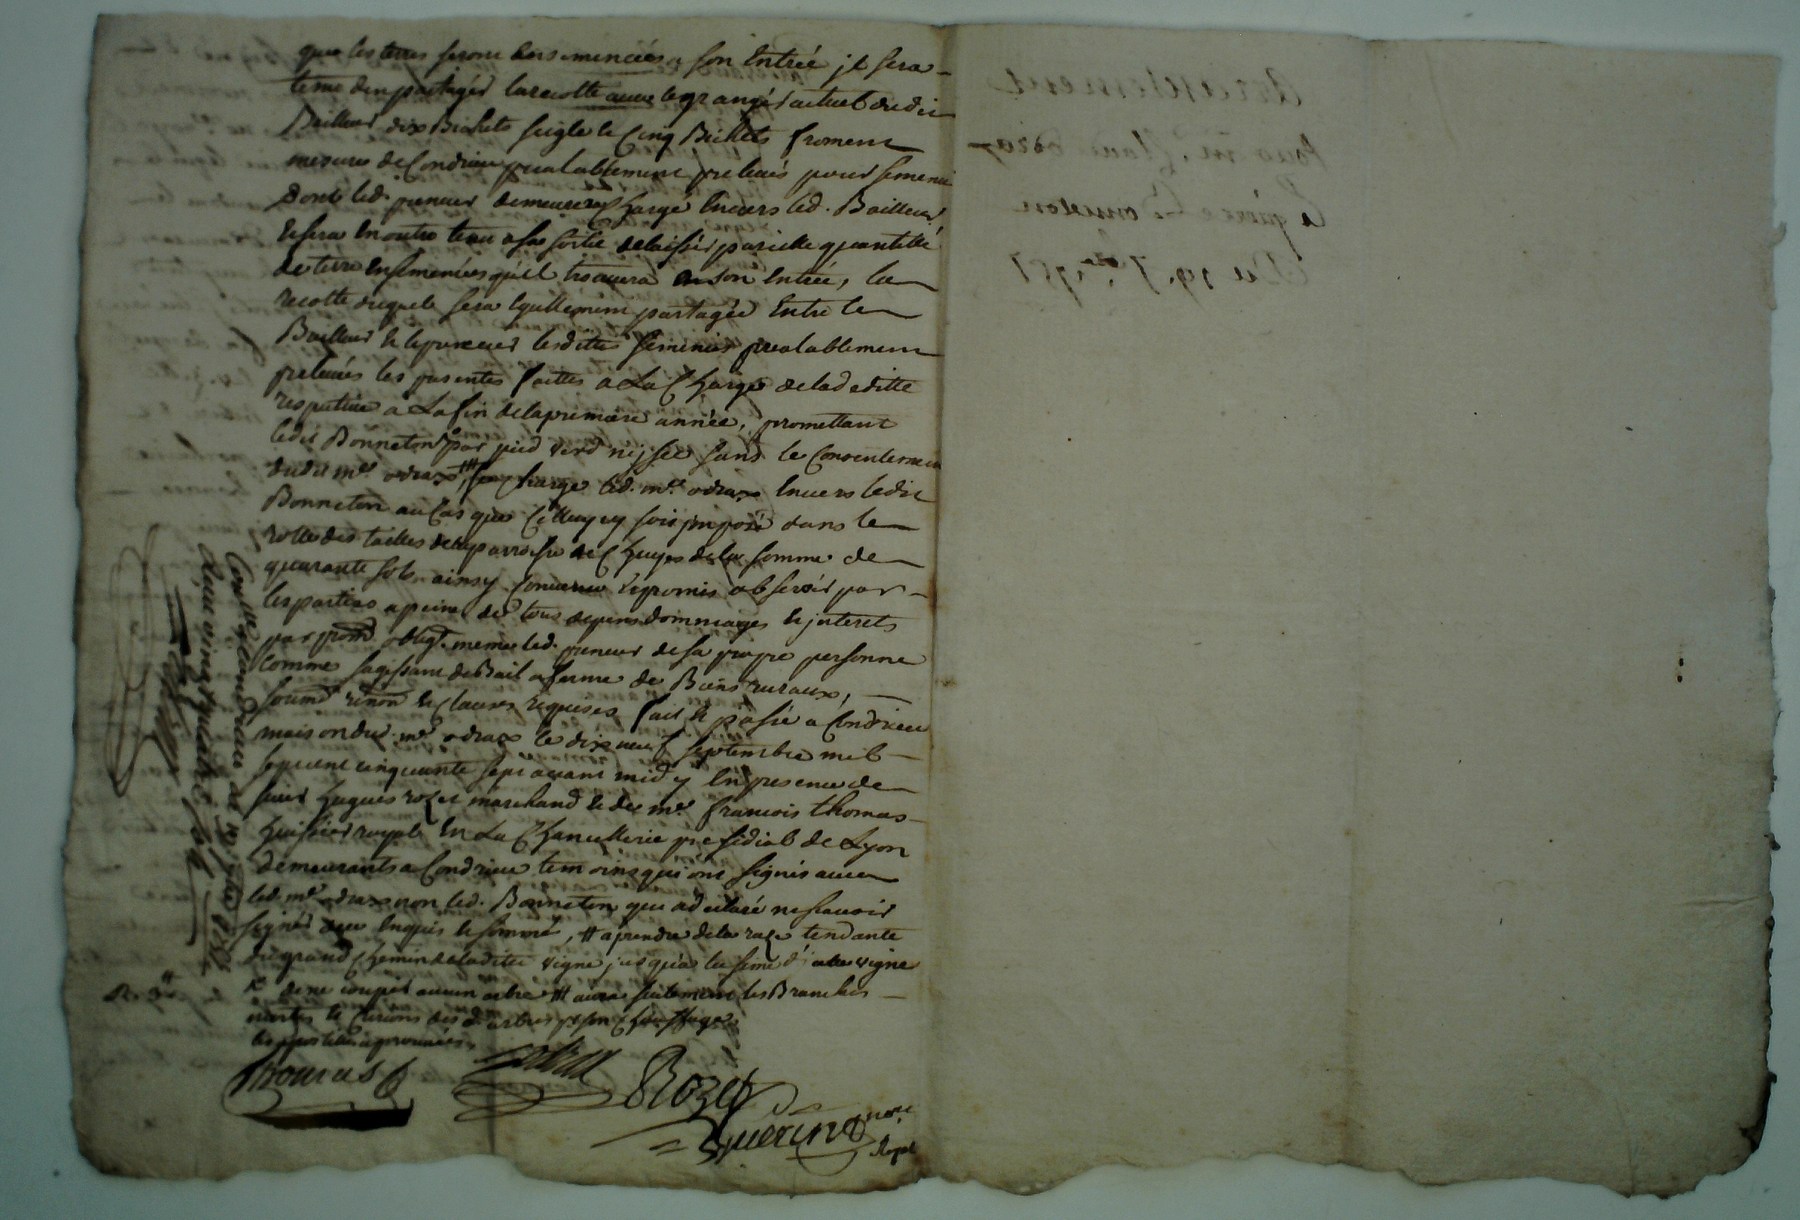 que les terres seront ensemencées a son Entrée jl sera
tenu d'en partager la recolte avec le granger actuel dudit
Bailleur dix Bichets seigle et Cinq Bichets froment
mesure de Condrieu prealablement prelevés pour semence
dont led. preneur demeurera Chargé Envers led. Bailleur,
Et sera En outre tenu a sa sortie de laisser pareille quantité
de terre Ensemencées qu'il trouvera a son Entrée, la
recolte duquel sera Egallement partagée Entre le
Bailleur et le preneur lesdittes semences prealablement
prelevées les presentes faittes a La Charge de la deditte
respective a La fin de la premiere année, promettant
ledit Bonneton par pied verd n'y sec sans le Consentement
dudit me odrax, se charge led. me odrax Envers ledit
Bonneton au Cas que Celluy cy soit jmposé dans le
rolle des tailles de la parroisse de Chuyes de la somme de
quarante sols, ainsy Convenu Et promis observer par
les parties a peine de tous depens dommages et jnterets
par prom. oblig. meme led. preneur de sa propre personne
Comme sagissant de Bail a ferme de Biens ruraux,
soumd. renon. et Clauses requises fait et passé a Condrieu
maison dud. me odrax le dix neuf septembre mil
sept cent cinquante sept avant midy En presence de
sieur hugues rozet marchand et de me francois thomas
huissier royal En La Chancellerie presidial de Lyon
demeurants a Condrieu temoins qui ont signés avec
led. me odrax non led. Bonneton qui a declaré ne scavoir
signer de ce Enquis et sommé, # a prendre de la raze tendante
du grand Chemin de la ditte vigne jusqu'a la vigne
x de ne couper aucun arbre ## aura seulement les Branches
mortes et des d. arbres p. son Chauffage
les apostilles approuvées
Thomas
odrax
Rozet
Guerin nore
Royal
Con.lle a Condrieu le
Reçu vingt quatre sols